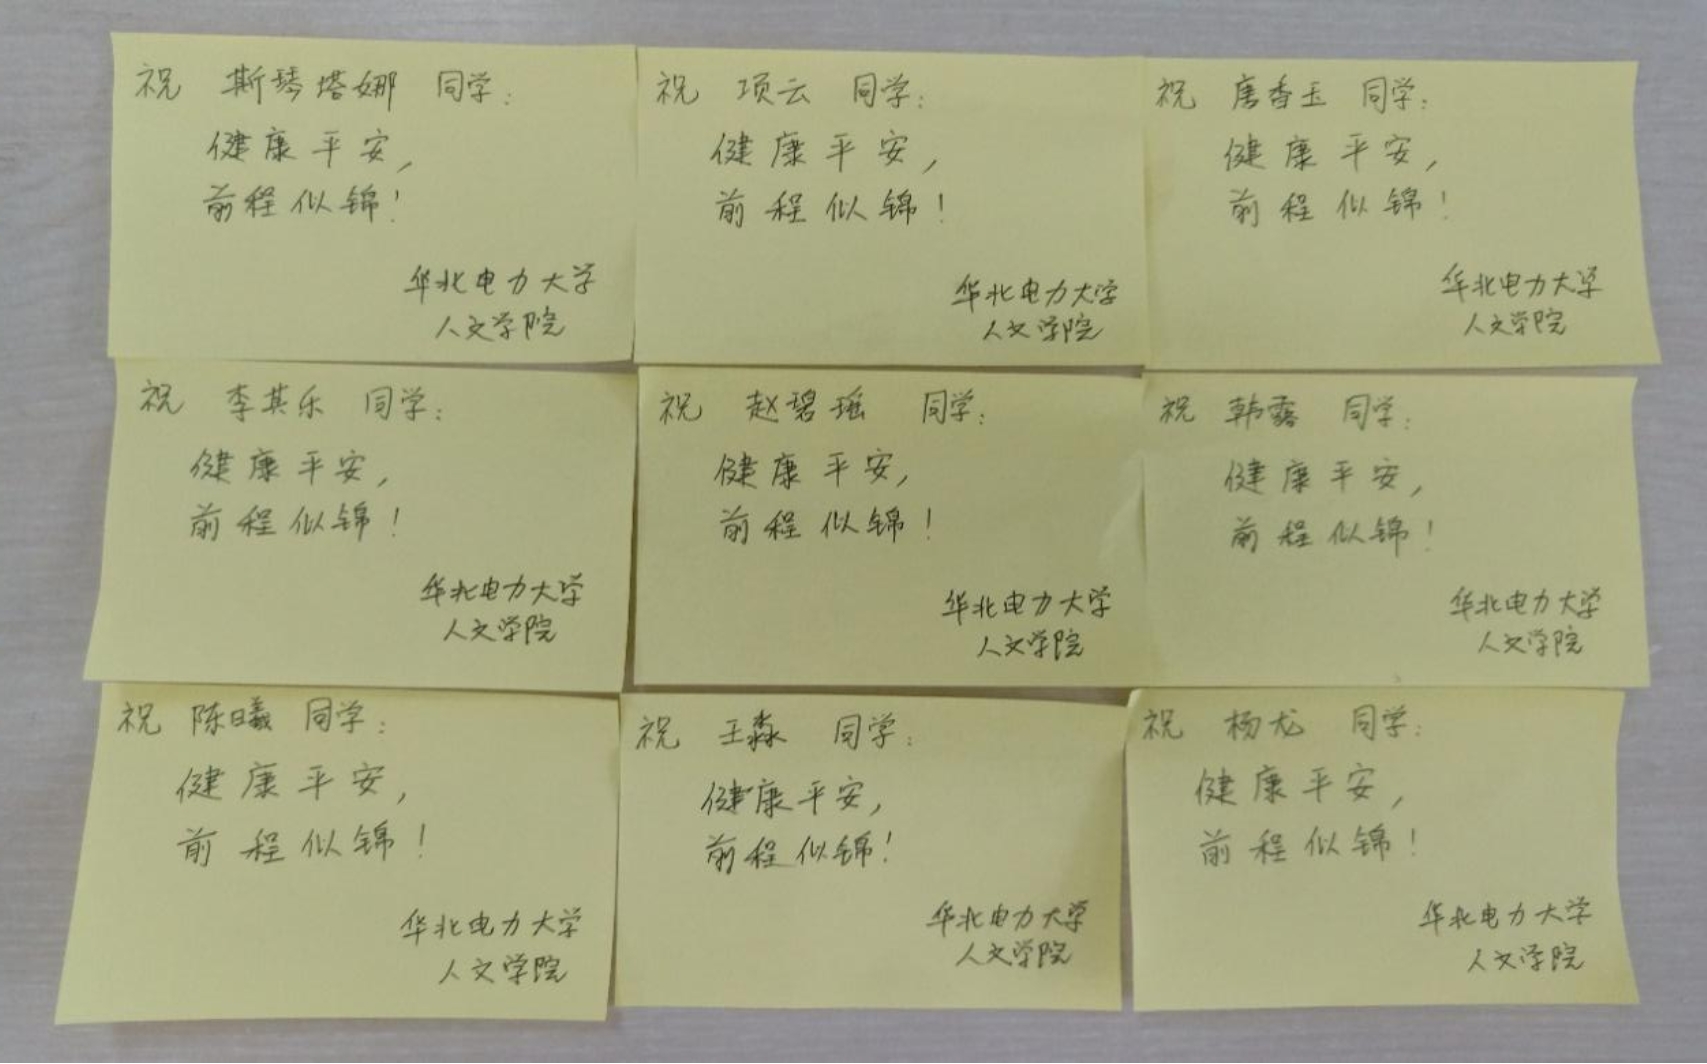 祝 斯琴塔娜 同学:
健康平安,
前程似锦!
华北电力大学
人文学院
祝 项云 同学:
健康平安,
前程似锦!
华北电力大学
人文学院
祝 唐香玉 同学:
健康平安,
前程似锦!
华北电力大学
人文学院
祝 李其乐 同学:
健康平安,
前程似锦!
华北电力大学
人文学院
祝 赵碧瑶 同学:
健康平安,
前程似锦!
华北电力大学
人文学院
祝 韩露 同学:
健康平安,
前程似锦!
华北电力大学
人文学院
祝 陈曦 同学:
健康平安,
前程似锦!
华北电力大学
人文学院
祝 王淼 同学:
健康平安,
前程似锦!
华北电力大学
人文学院
祝 杨龙 同学:
健康平安,
前程似锦!
华北电力大学
人文学院